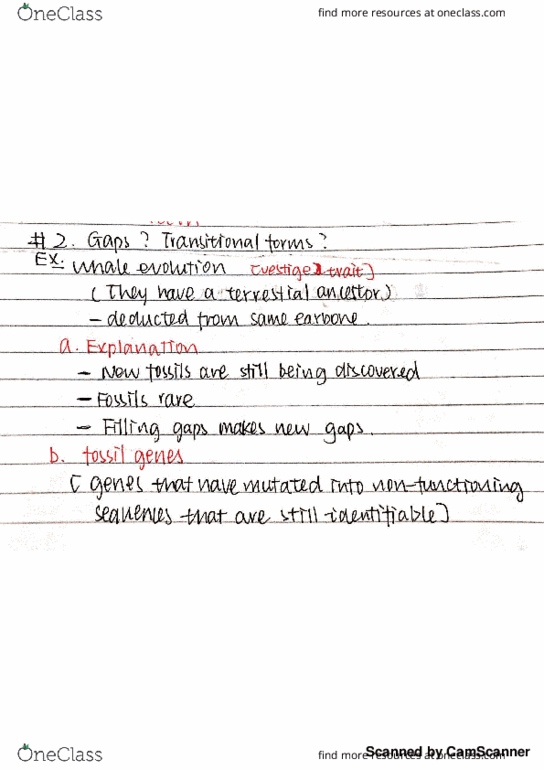 OneClass
find more resources at oneclass.com
# 2. Gaps ? Transitional forms ?
Ex: Whale evolution [vestigel trait]
( They have a terrestial ancestor.)
- deducted from same earbone.
a. Explanation
- New fossils are still being discovered
- Fossils rare
- Filling gaps makes new gaps.
b. fossil genes
[ genes that have mutated into non-functioning
sequenes that are still identifiable]
OneClass
find more resources at oneclass.com
Scanned by CamScanner